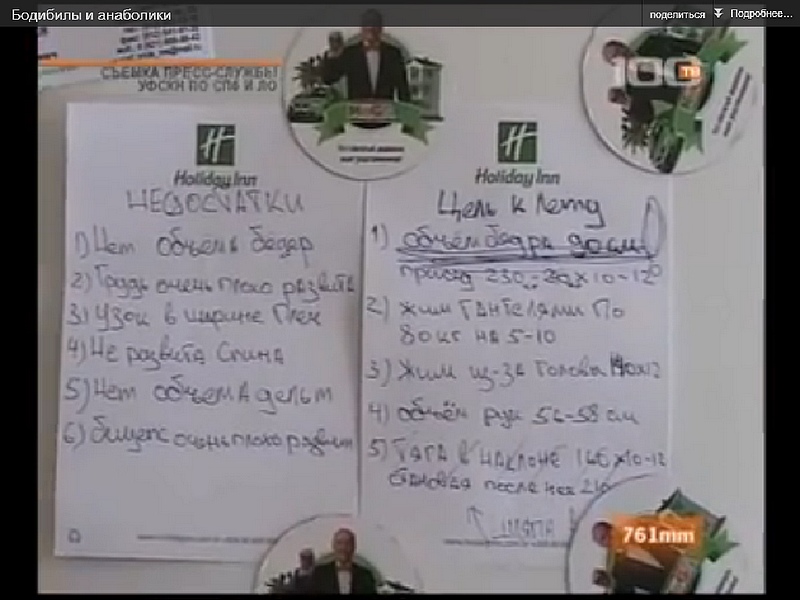 Бодибилы и анаболики
поделиться
Подробнее...
СЪЕМКА ПРЕСС-СЛУЖБЫ
УФСКН ПО СПб И ЛО
100 ТВ
Holiday Inn
НЕДОСТАТКИ
1) Нет объема бедер
2) Грудь очень плохо развита
3) Узок в ширине плеч
4) Не развита Спина
5) Нет объема дельт
6) бицепс очень плохо развит
Holiday Inn
Цель к Лету
1) объём бедра 90 см
присед 230-
2) жим гантелями по
80 кг на 5-10
3) Жим из-за головы
4) объём рук 56-58 см
5) ТЯГА в наклоне
становая после неё
761mm